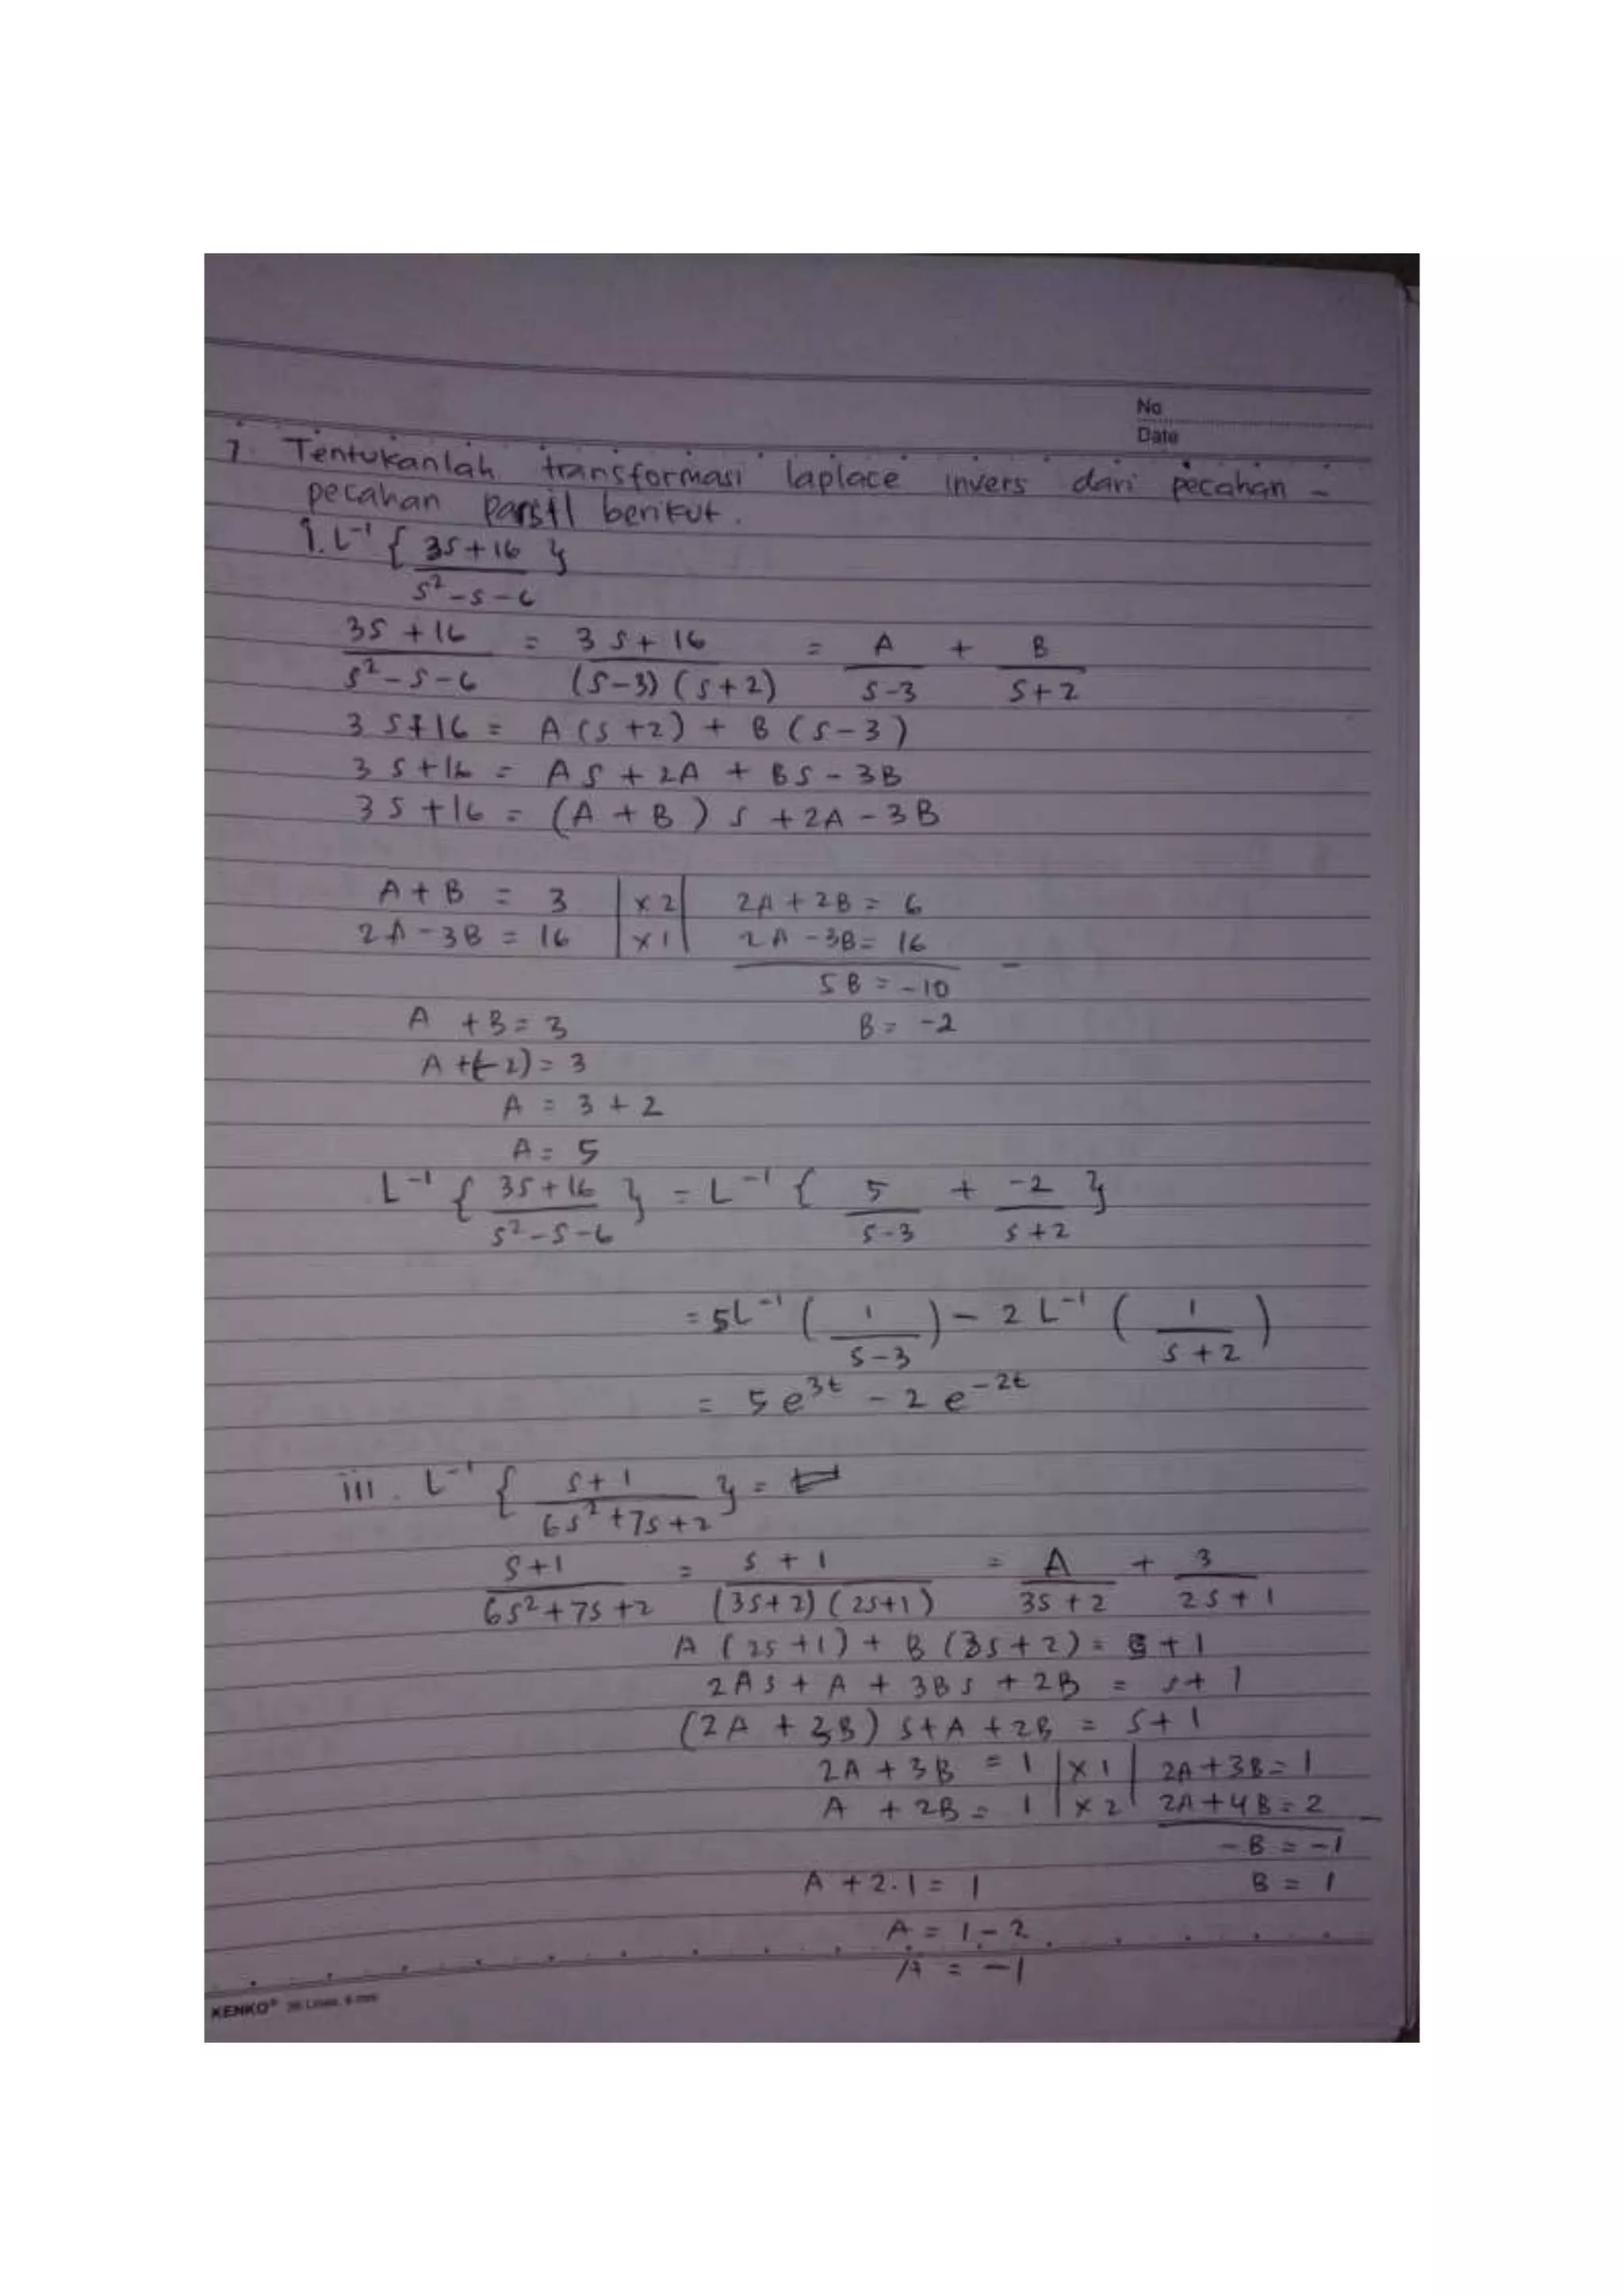 No
Date
7. Tentukanlah transformasi laplace invers dari pecahan -
pecahan parsil berikut.
i. L⁻¹ { (3s+16)/(s²-s-6) }
(3s+16)/(s²-s-6) = (3s+16)/((s-3)(s+2)) = A/(s-3) + B/(s+2)
3s+16 = A(s+2) + B(s-3)
3s+16 = As + 2A + Bs - 3B
3s+16 = (A+B)s + 2A - 3B
A+B = 3 | x2 | 2A+2B = 6
2A-3B = 16 | x1 | 2A-3B = 16 -
5B = -10
A +B = 3 B = -2
A+(-2) = 3
A = 3+2
A = 5
L⁻¹ { (3s+16)/(s²-s-6) } = L⁻¹ { 5/(s-3) + -2/(s+2) }
= 5L⁻¹ ( 1/(s-3) ) - 2 L⁻¹ ( 1/(s+2) )
= 5e³ᵗ - 2e⁻²ᵗ
iii. L⁻¹ { (s+1)/(6s²+7s+2) } =
(s+1)/(6s²+7s+2) = (s+1)/((3s+2)(2s+1)) = A/(3s+2) + 3/(2s+1)
A(2s+1) + B(3s+2) = s+1
2As + A + 3Bs + 2B = s+1
(2A+3B)s+A+2B = s+1
2A+3B = 1 | x1 | 2A+3B = 1
A +2B = 1 | x2 | 2A+4B = 2 -
-B = -1
A+2.1 = 1 B = 1
A = 1-2
A = -1
KENKO®